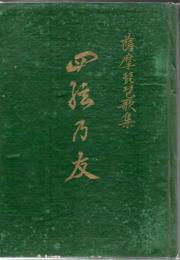 薩摩琵琶歌集
四絃乃友